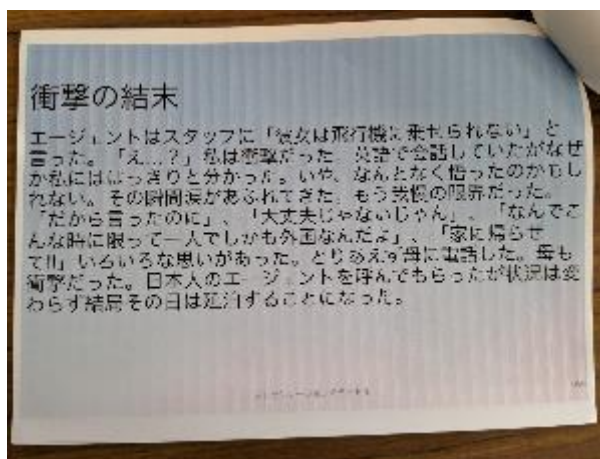 衝撃の結末
エージェントはスタッフに「彼女は飛行機に乗せられない」と
言った。「え…?」私は衝撃だった。英語で会話していたがなぜ
か私にははっきりと分かった。いや、なんとなく悟ったのかもし
れない。その瞬間涙があふれてきた。もう我慢の限界だった。
「だから言ったのに」、「大丈夫じゃないじゃん」、「なんでこ
んな時に限って一人でしかも外国なんだよ」、「家に帰らせ
て!!」いろいろな思いがあった。とりあえず母に電話した。母も
衝撃だった。日本人のエージェントを呼んでもらったが状況は変
わらず結局その日は延泊することになった。